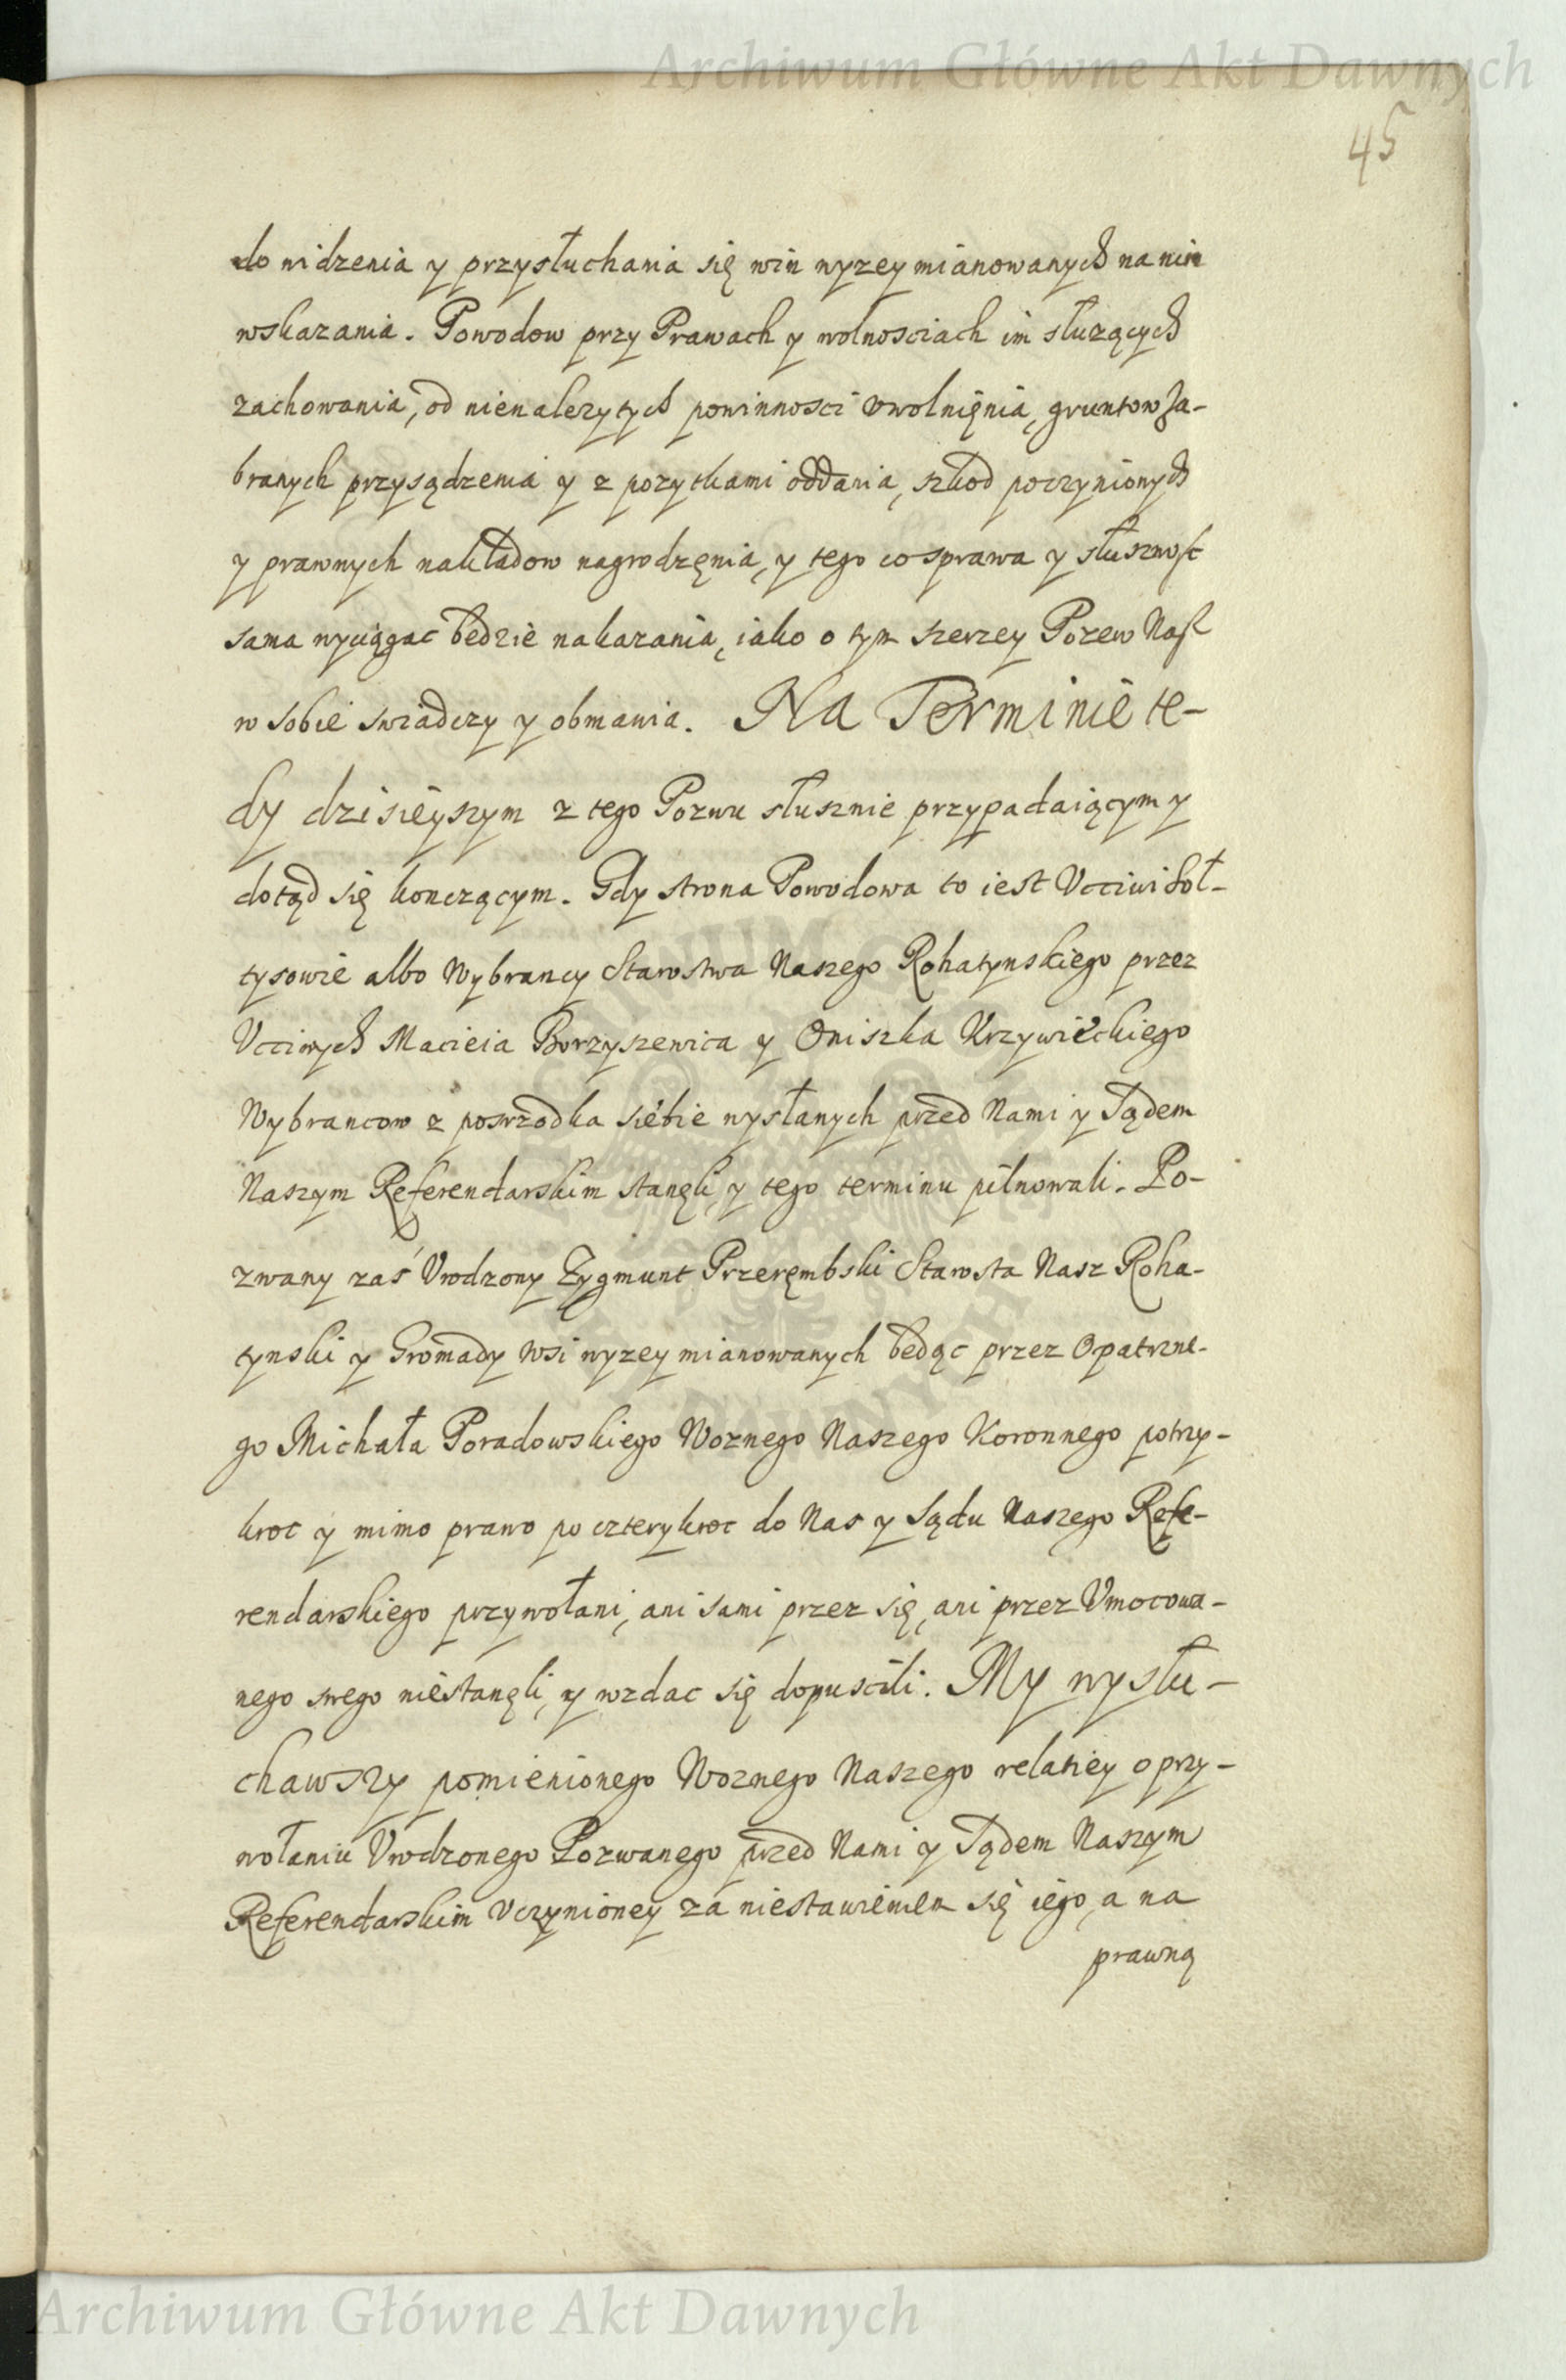 Archiwum Główne Akt Dawnych
45
do widzenia y przysłuchania się win wyzey mianowanych na nim
wskazania. Powodow przy Prawach y wolnosciach im słuzących
zachowania, od nienalezytych powinnosci vwolnięnia, gruntow za-
branych przysądzenia y z pozytkami oddania, szkod poczynionych
y prawnych nakładow nagrodzęnia, y tego co sprawa y słusznosc
sama wyciągac będzie nakazania, iako o tym szerzey Pozew Nasz
w sobie swiadczy y obmawia. Na Terminie te-
dy dzisieyszym z tego Pozwu słusznie przypadaiącym y
dotąd się konczącym. Gdy strona Powodowa to iest Vcciwi Soł-
tysowie albo Wybrancy Starostwa Naszego Rohatynskiego przez
Vcciwych Macieia Borzyszewica y Oniszka Krzywieckiego
Wybrancow z posrzodka siebie wysłanych przed Nami y Sądem
Naszym Referendarskim stanęli, y tego terminu pilnowali. Po-
zwany zaś Vrodzony Zygmunt Przerębmski Starosta Nasz Roha-
tynski y Gromady wsi wyzey mianowanych będąc przez Opatrzne-
go Michała Poradowskiego Woznego Naszego Koronnego potrzy-
kroc y mimo prawo po czterykroc do Nas y Sądu Naszego Refe-
rendarskiego przywołani, ani sami przez się, ani przez Vmocowa-
nego swego niestanęli, y wzdac się dopuscili. My wysłu-
chawszy pomienionego Woznego Naszego relatiey o przy-
wołaniu Vrodzonego Pozwanego przed Nami y Sądem Naszym
Referendarskim Vczynioney za niestawieniem się iego, a na
prawną
Archiwum Główne Akt Dawnych